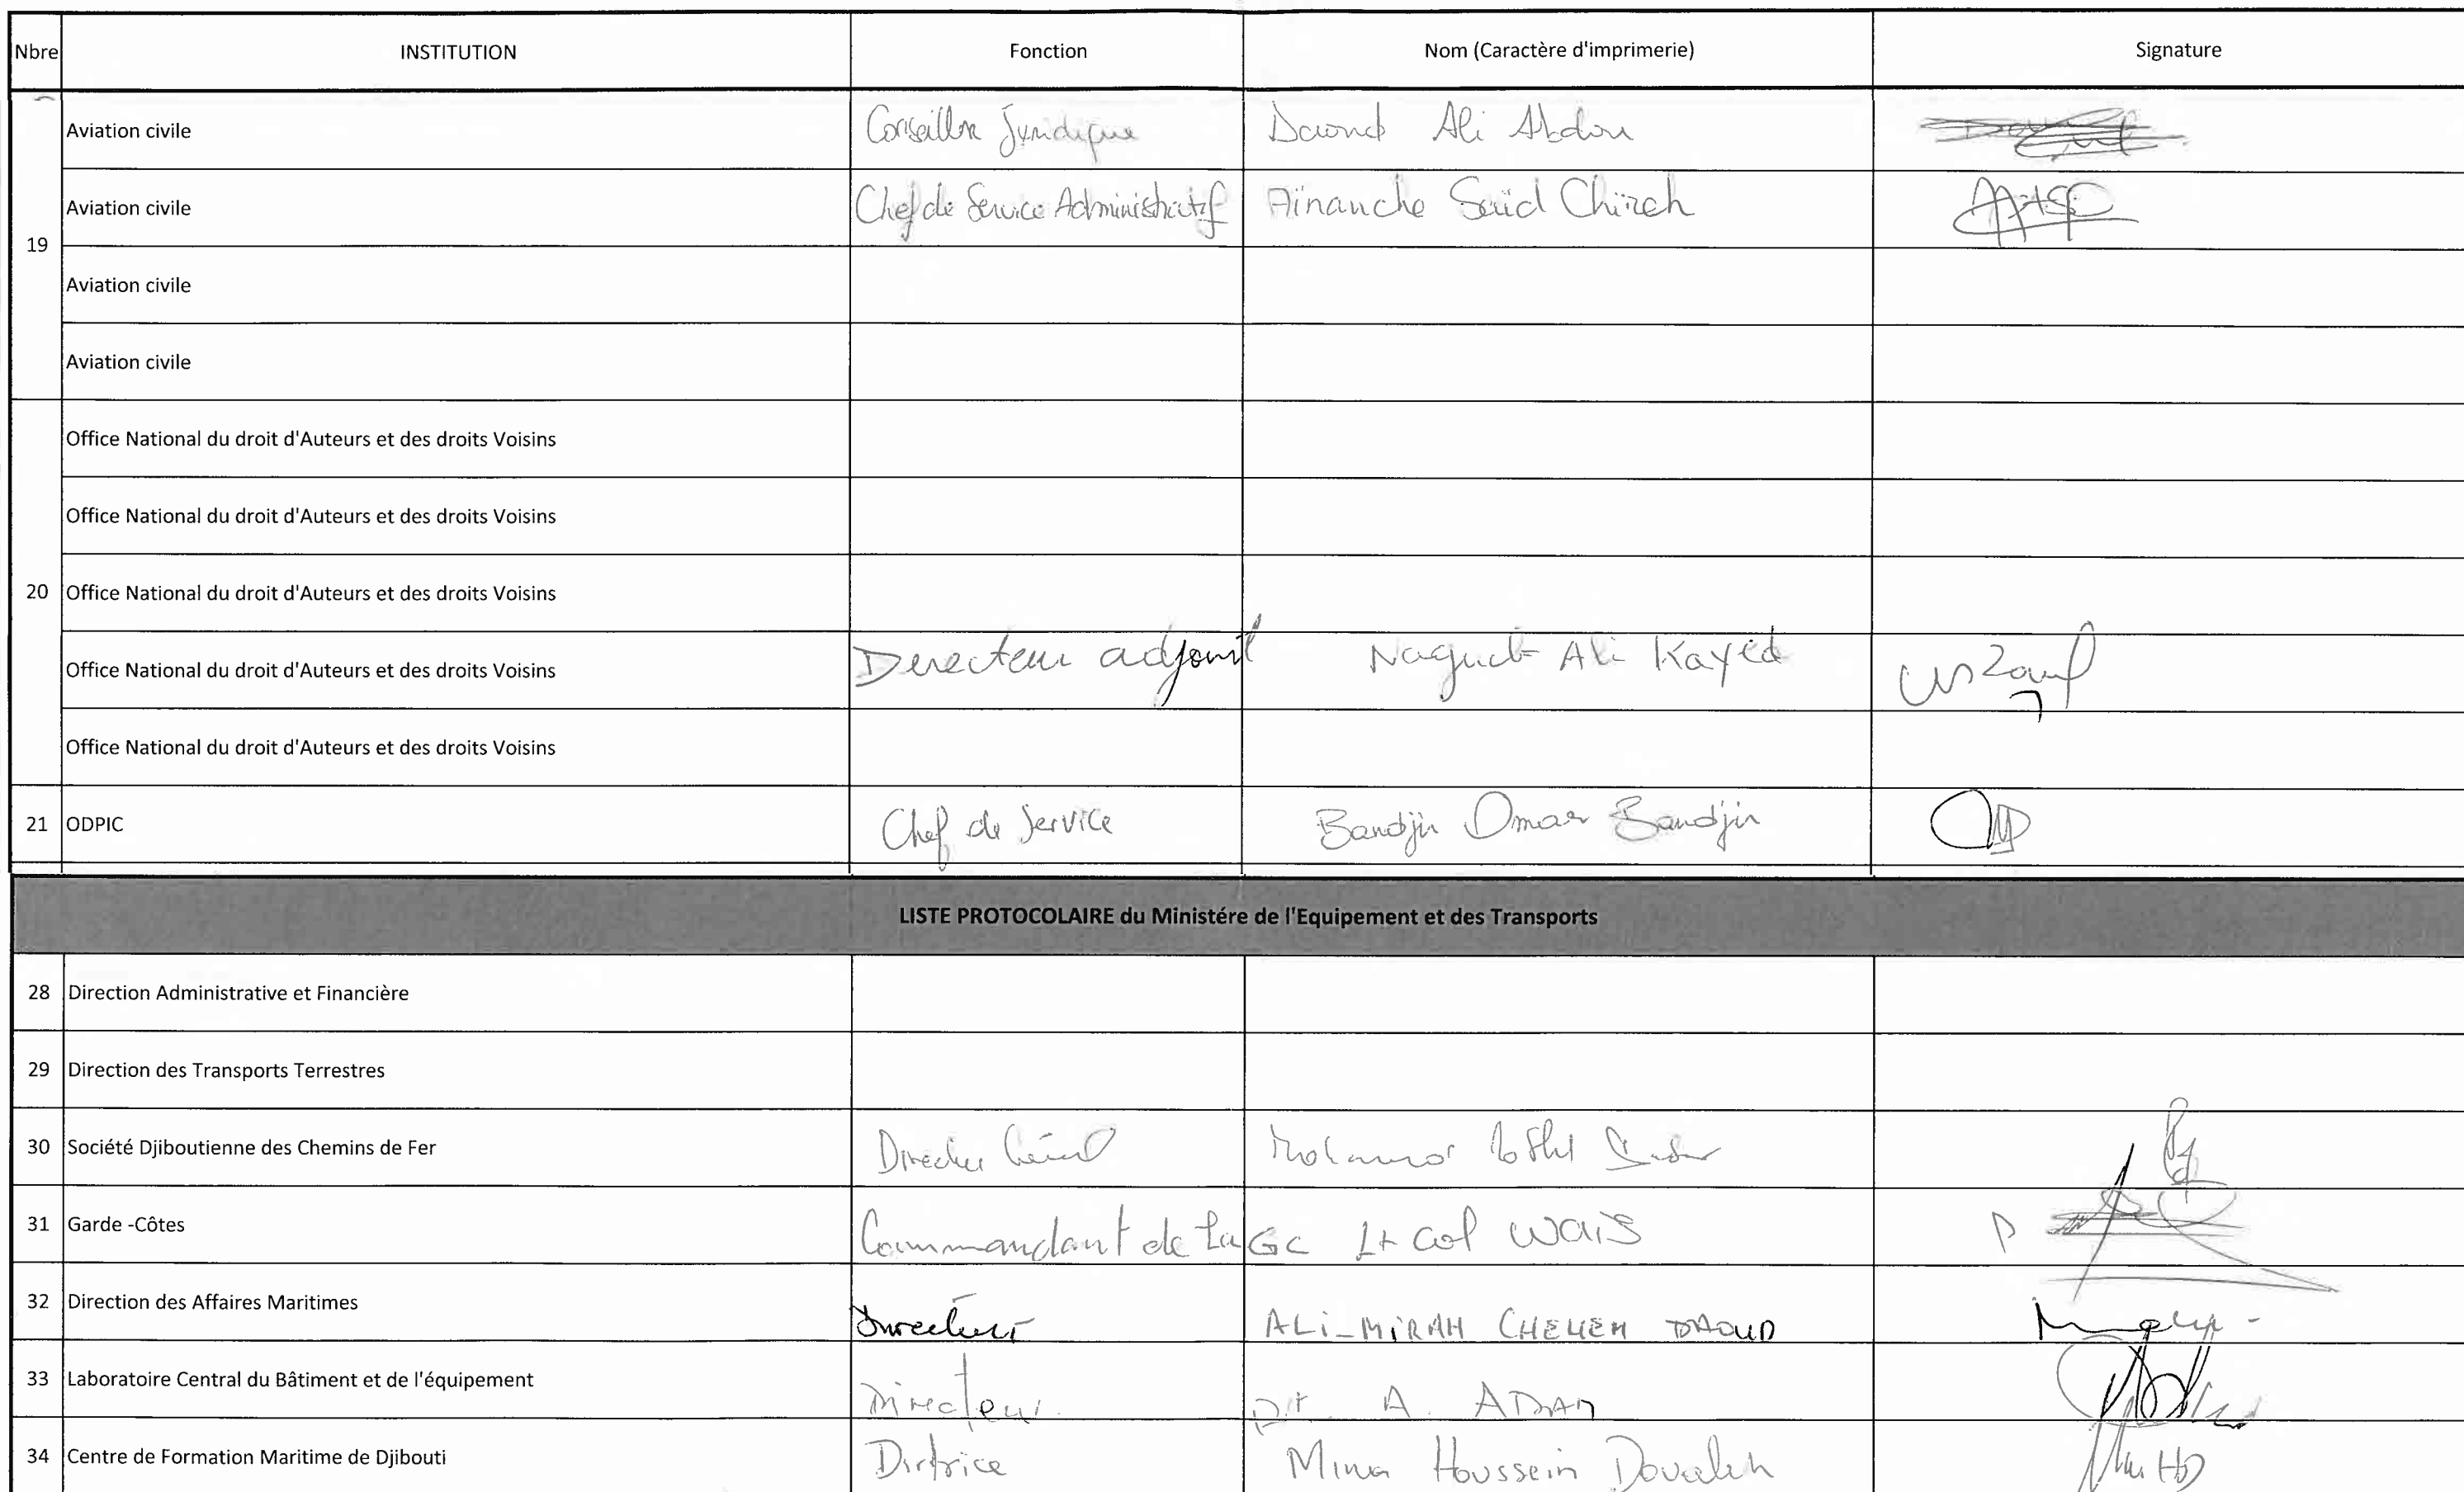 Nbre INSTITUTION Fonction Nom (Caractère d'imprimerie) Signature
Aviation civile Conseiller Juridique Daoud Ali Abdou
Aviation civile Chef de Service Administratif Aïnanche Saïd Chireh
19
Aviation civile
Aviation civile
Office National du droit d'Auteurs et des droits Voisins
Office National du droit d'Auteurs et des droits Voisins
20 Office National du droit d'Auteurs et des droits Voisins
Office National du droit d'Auteurs et des droits Voisins Directeur adjoint Naguib Ali Kayed
Office National du droit d'Auteurs et des droits Voisins
21 ODPIC Chef de Service Bandjir Omar Bandjir
LISTE PROTOCOLAIRE du Ministére de l'Equipement et des Transports
28 Direction Administrative et Financière
29 Direction des Transports Terrestres
30 Société Djiboutienne des Chemins de Fer
31 Garde -Côtes Commandant de La GC Lt Col WaiS
32 Direction des Affaires Maritimes Directeur ALi-MiRAH CHEHEM DAOUD
33 Laboratoire Central du Bâtiment et de l'équipement Directeur A. ADAN
34 Centre de Formation Maritime de Djibouti Houssein Doualeh